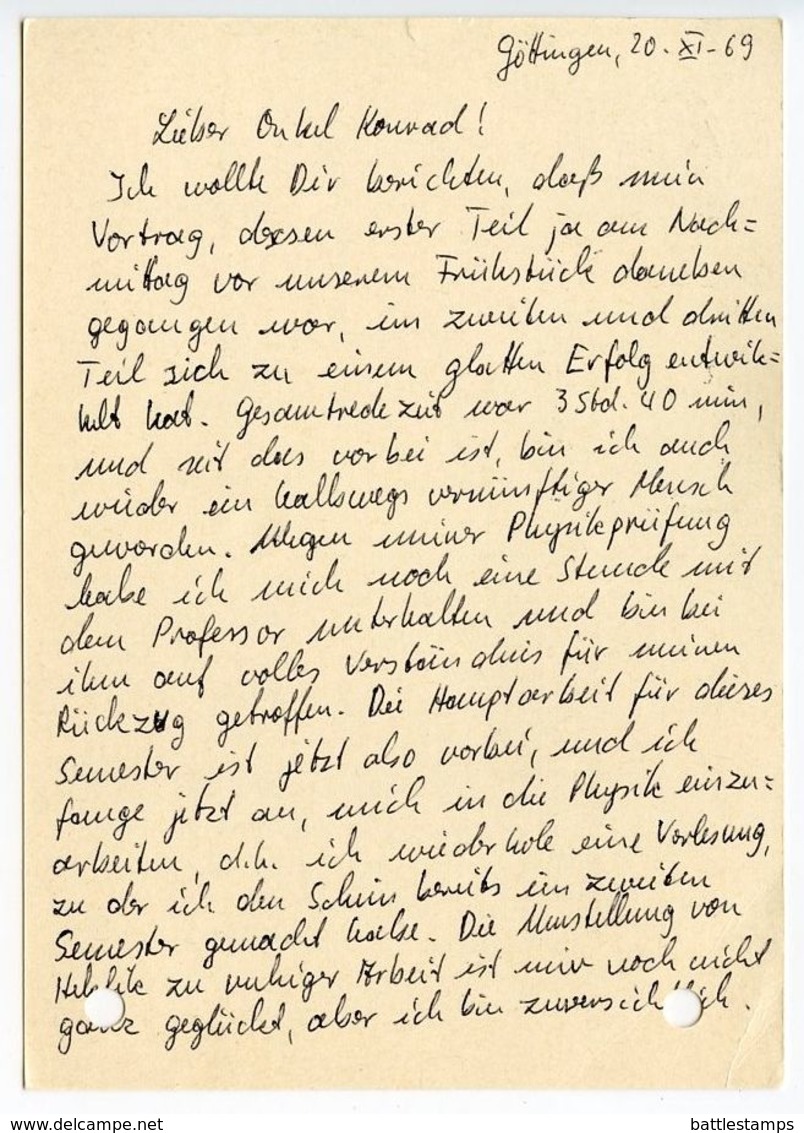 Göttingen, 20. XI. 69
Lieber Onkel Konrad!
Ich wollte Dir berichten, daß mein
Vortrag, dessen erster Teil ja am Nach=
mittag vor unserem Frühstück daneben
gegangen war, im zweiten und dritten
Teil sich zu einem glatten Erfolg entwik=
kelt hat. Gesamtredezeit war 3 Std. 40 min,
und seit das vorbei ist, bin ich auch
wieder ein halbwegs vernünftiger Mensch
geworden. Wegen meiner Physikprüfung
habe ich mich noch eine Stunde mit
dem Professor unterhalten und bin bei
ihm auf volles Verständnis für meinen
Rückzug getroffen. Die Hauptarbeit für dieses
Semester ist jetzt also vorbei, und ich
fange jetzt an, mich in die Physik einzu=
arbeiten, d.h. ich wiederhole eine Vorlesung,
zu der ich den Schein bereits im zweiten
Semester gemacht habe. Die Umstellung von
Hektik zu ruhiger Arbeit ist mir noch nicht
ganz geglückt, aber ich bin zuversichtlich.
www.delcampe.net
battlestamps